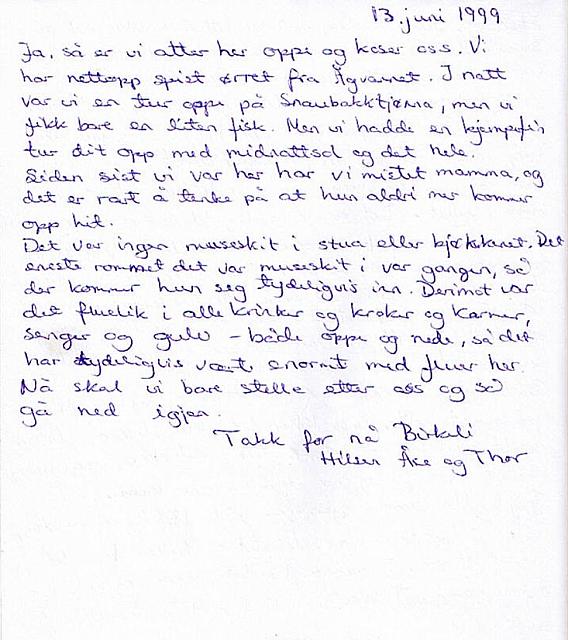 13. juni 1999
Ja, så er vi atter her oppe og koser oss. Vi
har nettopp spist ørret fra Ågvannet. I natt
var vi en tur oppe på Snaubakktjønna, men vi
fikk bare en liten fisk. Men vi hadde en kjempefin
tur dit opp med midnattsol og det hele.
Siden sist vi var her har vi mistet mamma, og
det er rart å tenke på at hun aldri mer kommer
opp hit.
Det var ingen museskit i stua eller kjøkkenet. Det
eneste rommet det var museskit i var gangen, så
der kommer hun seg tydeligvis inn. Derimot var
det fluelik i alle kriker og kroker og karmer,
senger og gulv - både oppe og nede, så det
har tydeligvis vært enormt med fluer her.
Nå skal vi bare stelle etter oss og så
gå ned igjen.
Takk for nå Birkeli
Hilsen og Thor